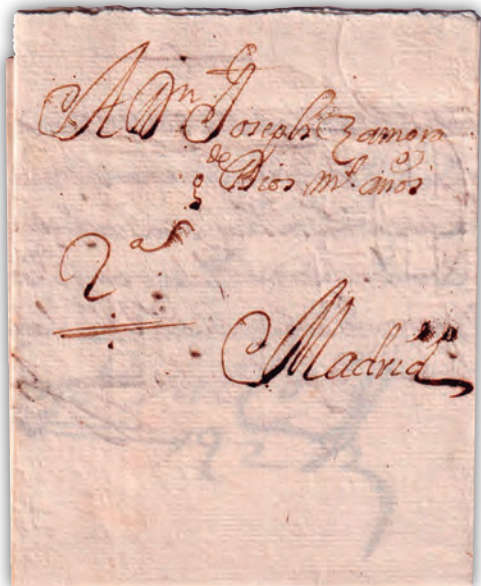 A Dn Joseph Zamora
g de Dios ms as años
2as
Madrid